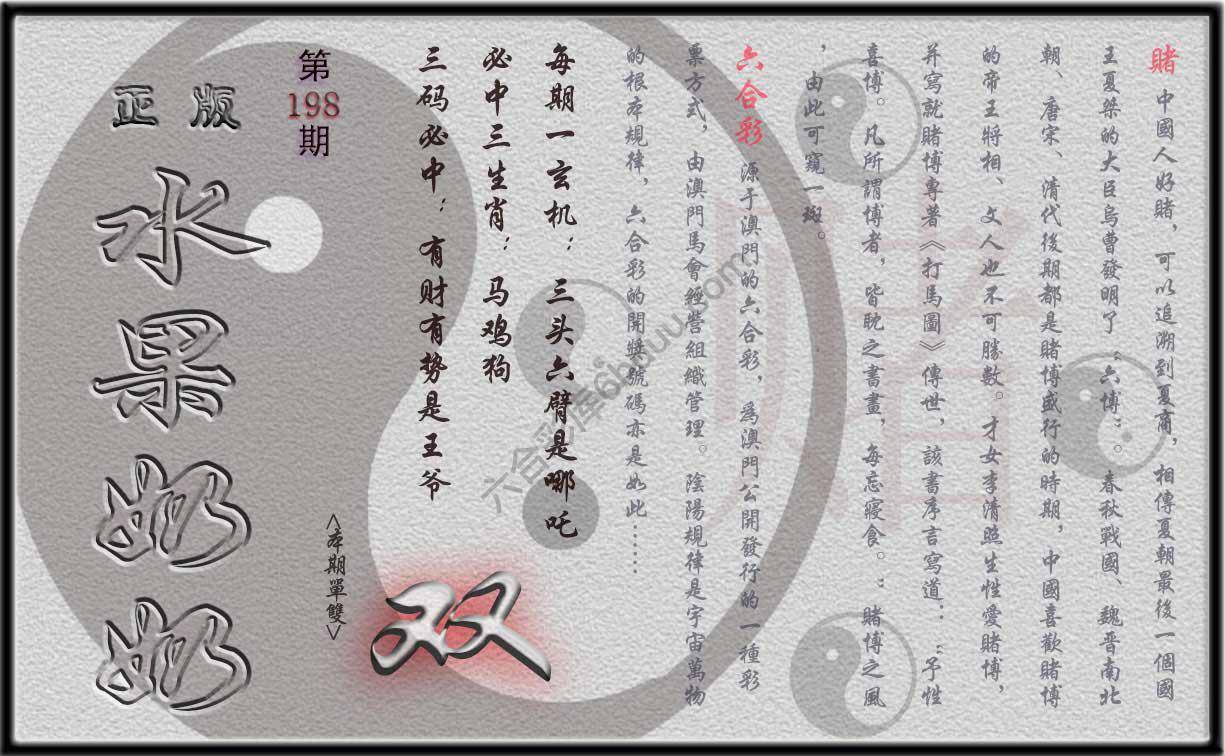 賭 中國人好賭，可以追溯到夏商，相傳夏朝最後一個國
王夏桀的大臣烏曹發明了“六博”。春秋戰國、魏晉南北
朝、唐宋、清代後期都是賭博盛行的時期，中國喜歡賭博
的帝王將相、文人也不可勝數。才女李清照生性愛賭博，
并寫就賭博專著《打馬圖》傳世，該書序言寫道：“予性
喜博。凡所謂博者，皆耽之書晝，每忘寢食。”賭博之風
，由此可窺一斑。
六合彩 源于澳門的六合彩，爲澳門公開發行的一種彩
票方式，由澳門馬會經營組織管理。陰陽規律是宇宙萬物
的根本規律，六合彩的開獎號碼亦是如此……
每期一玄机：三头六臂是哪吒
必中三生肖：马鸡狗
三码必中：有财有势是王爷
双
<本期單雙>
第
198
期
正版
水果奶奶
賭
六合彩库6hduu.com